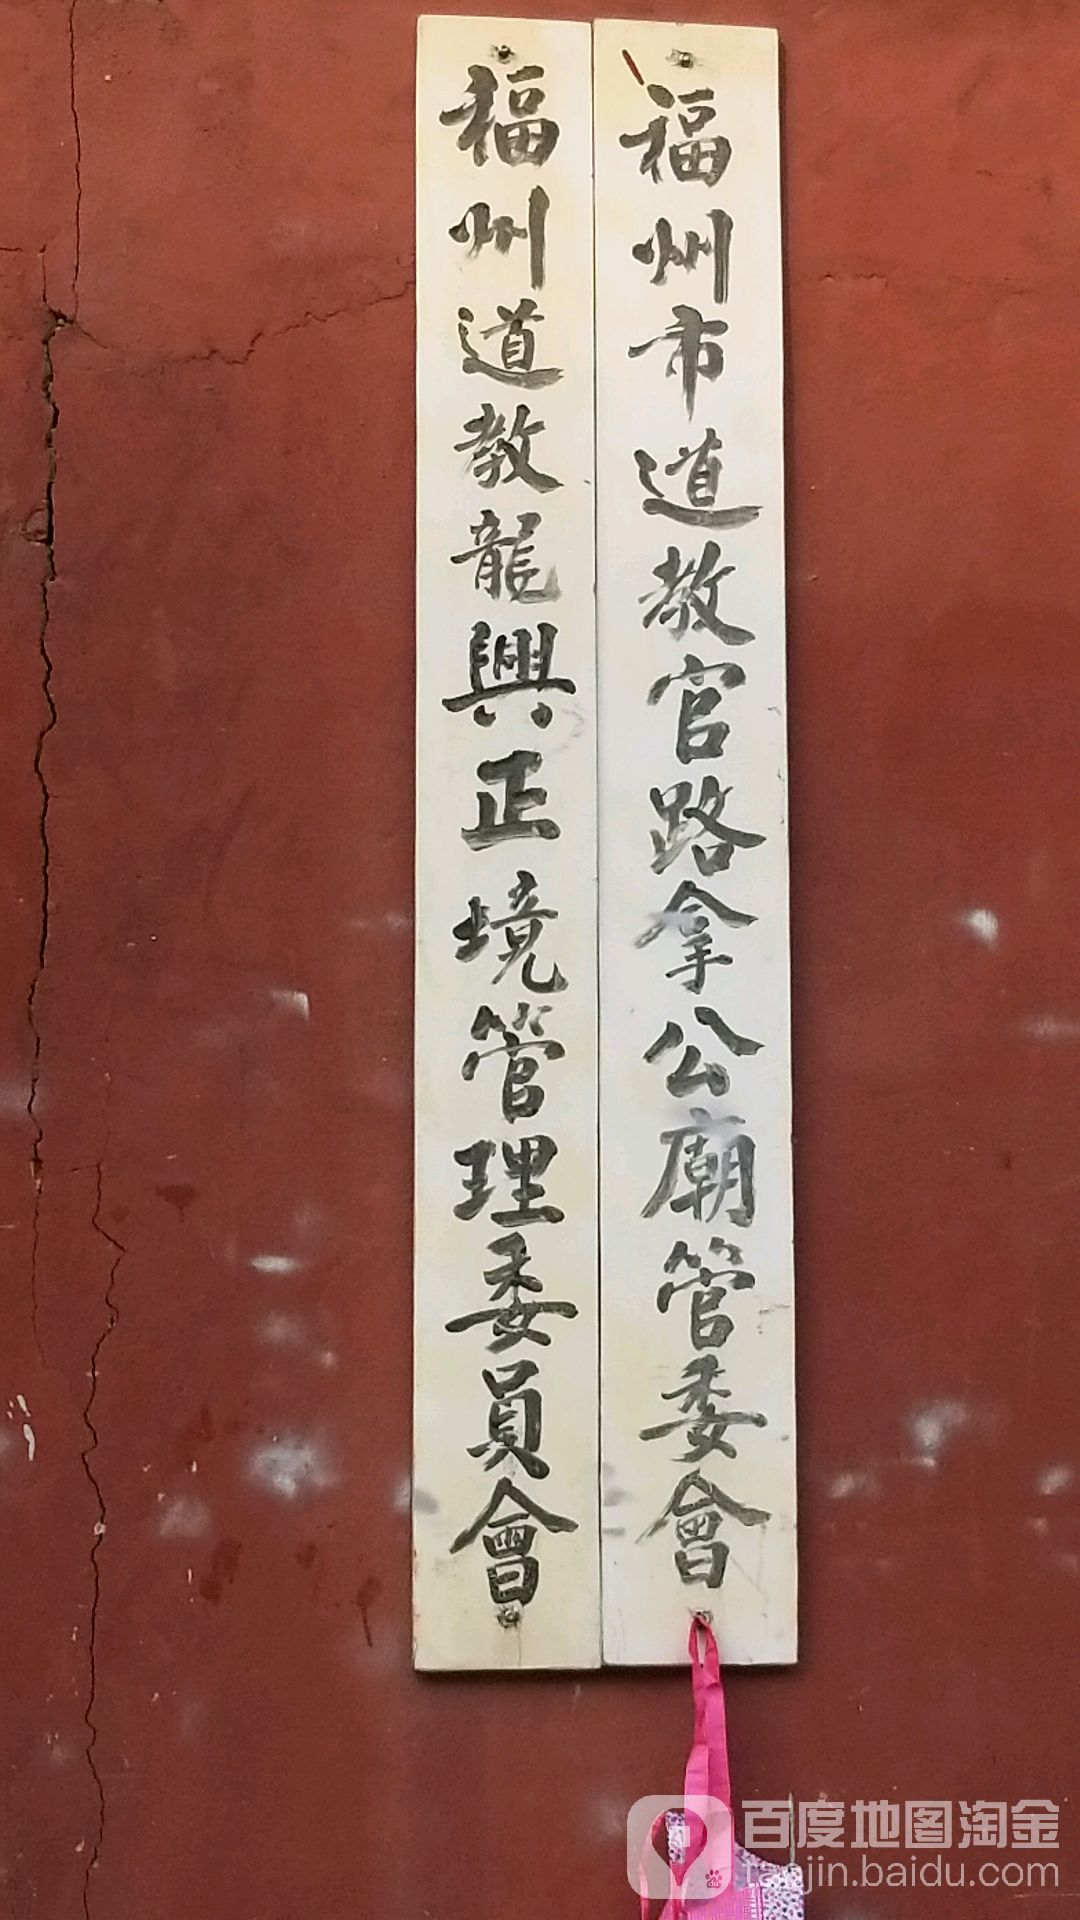 福州市道教官路拿公廟管委會
福州道教龍興正境管理委員會
百度地图淘金
taojin.baidu.com